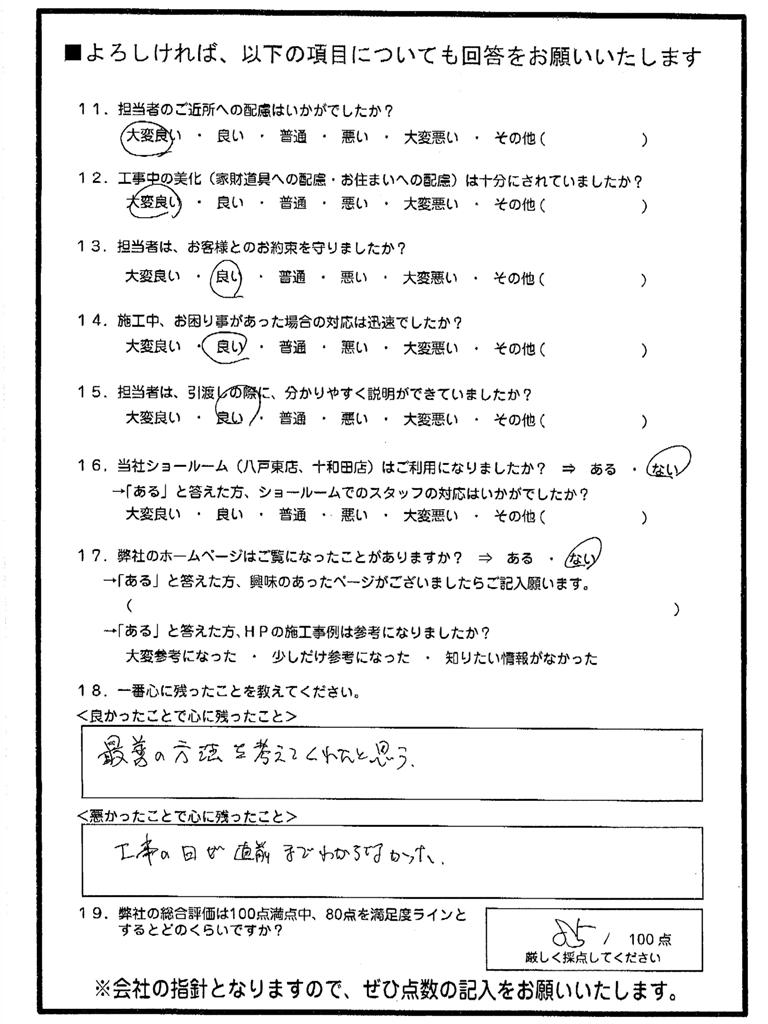 ■よろしければ、以下の項目についても回答をお願いいたします
１１．担当者のご近所への配慮はいかがでしたか？
大変良い ・ 良い ・ 普通 ・ 悪い ・ 大変悪い ・ その他（　　　　　　）
１２．工事中の美化（家財道具への配慮・お住まいへの配慮）は十分にされていましたか？
大変良い ・ 良い ・ 普通 ・ 悪い ・ 大変悪い ・ その他（　　　　　　）
１３．担当者は、お客様とのお約束を守りましたか？
大変良い ・ 良い ・ 普通 ・ 悪い ・ 大変悪い ・ その他（　　　　　　）
１４．施工中、お困り事があった場合の対応は迅速でしたか？
大変良い ・ 良い ・ 普通 ・ 悪い ・ 大変悪い ・ その他（　　　　　　）
１５．担当者は、引渡しの際に、分かりやすく説明ができていましたか？
大変良い ・ 良い ・ 普通 ・ 悪い ・ 大変悪い ・ その他（　　　　　　）
１６．当社ショールーム（八戸東店、十和田店）はご利用になりましたか？ ⇒ ある ・ ない
→「ある」と答えた方、ショールームでのスタッフの対応はいかがでしたか？
大変良い ・ 良い ・ 普通 ・ 悪い ・ 大変悪い ・ その他（　　　　　　）
１７．弊社のホームページはご覧になったことがありますか？ ⇒ ある ・ ない
→「ある」と答えた方、興味のあったページがございましたらご記入願います。
（　　　　　　　　　　　　　　　　　　　　）
→「ある」と答えた方、ＨＰの施工事例は参考になりましたか？
大変参考になった ・ 少しだけ参考になった ・ 知りたい情報がなかった
１８．一番心に残ったことを教えてください。
＜良かったことで心に残ったこと＞
最善の方法を考えてくれたと思う。
＜悪かったことで心に残ったこと＞
工事の日が直前までわからなかった。
１９．弊社の総合評価は100点満点中、80点を満足度ラインと
するとどのくらいですか？
85 / 100点
厳しく採点してください
※会社の指針となりますので、ぜひ点数の記入をお願いいたします。